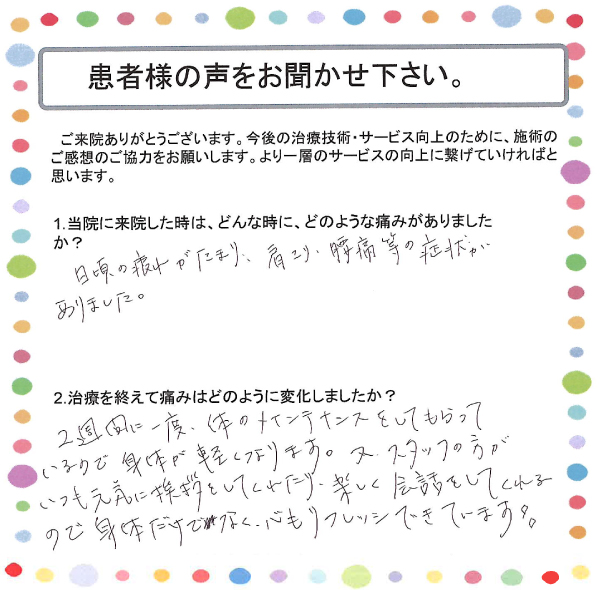 患者様の声をお聞かせ下さい。
ご来院ありがとうございます。今後の治療技術・サービス向上のために、施術の
ご感想のご協力をお願いします。より一層のサービスの向上に繋げていければと
思います。
1.当院に来院した時は、どんな時に、どのような痛みがありました
か？
日頃の疲れがたまり、肩こり、腰痛等の症状が
ありました。
2.治療を終えて痛みはどのように変化しましたか？
2週間に一度、体のメインテナンスをしてもらって
いるので身体が軽くなります。又、スタッフの方が
いつも元気に挨拶をしてくれたり、楽しく会話をしてくれる
ので身体だけでなく、心もリフレッシュできています。